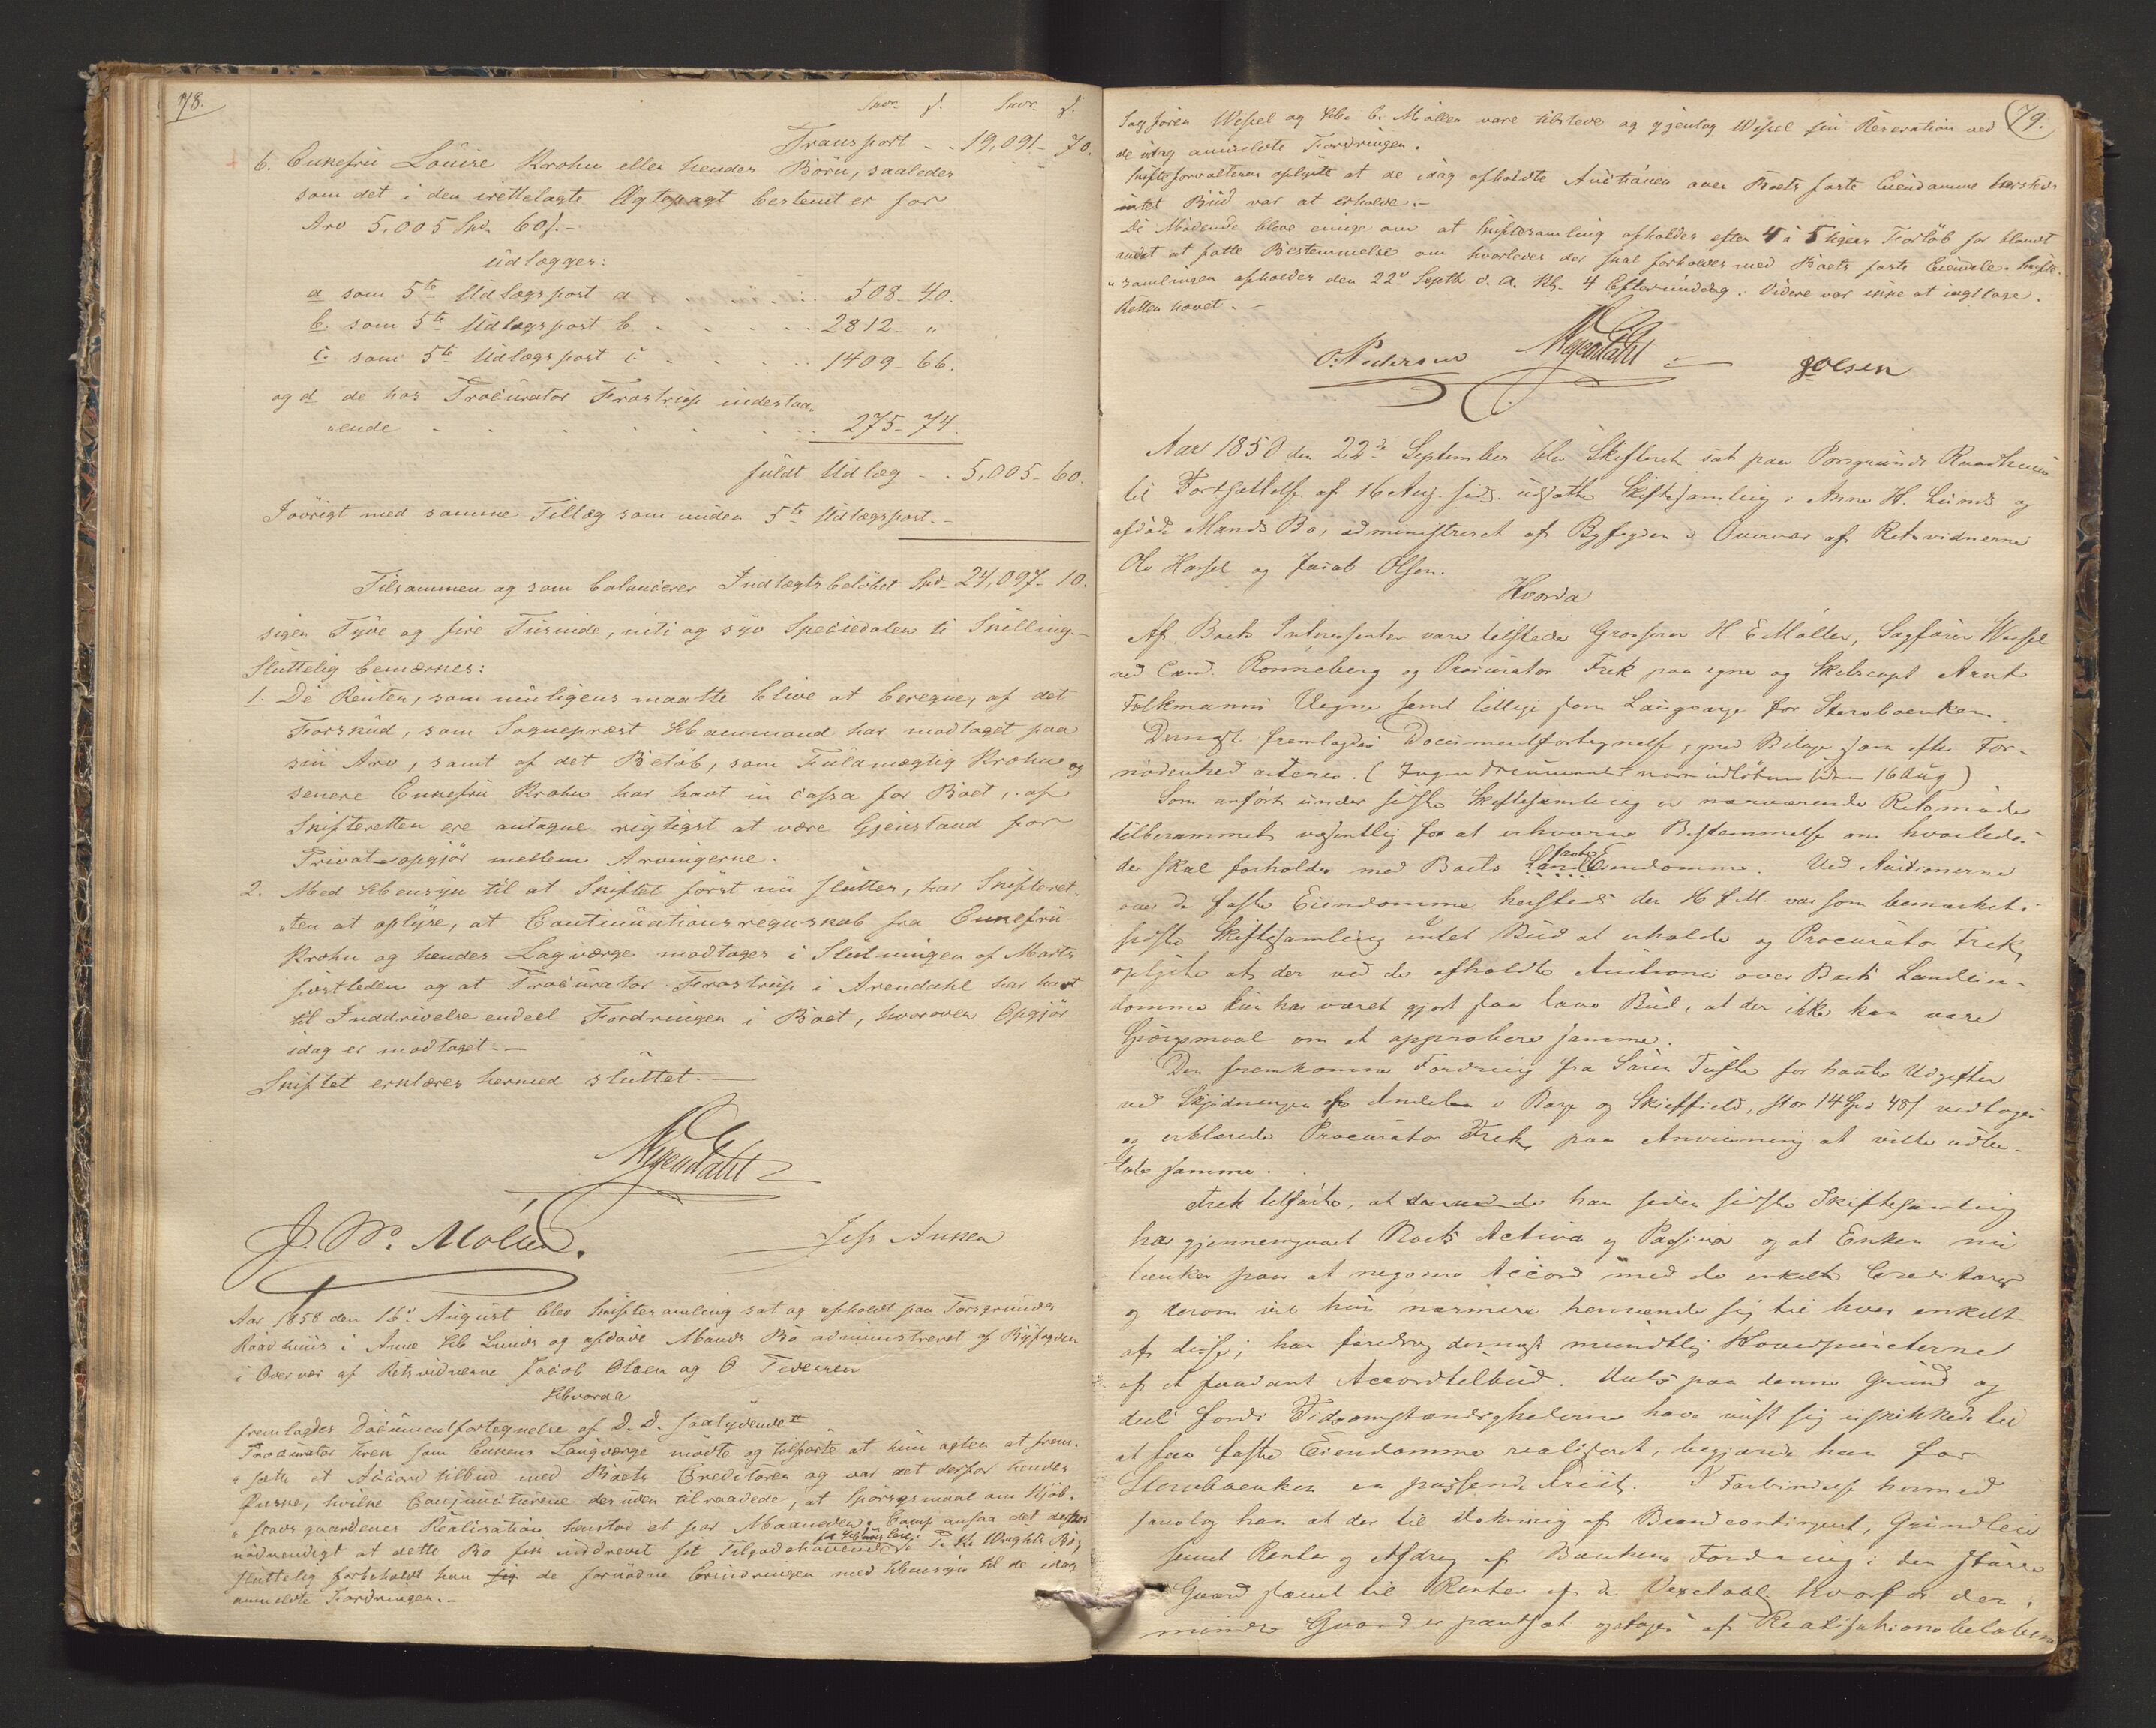 78.
Spdr. s. Spdr. s.
Transport - - 19,091 - 70.
6. Enkefrü Loüise Krohn eller hendes Börn, saaledes
som det i den irettelagte Ægtepagt bestemt er for
Arv 5,005 Spd. 60 s. -
üdlægges:
a som 5te Udlægspost a . . . . . 508 - 40.
b. som 5te Udlægspost b . . . . . 2812 - "
c. som 5te Udlægspost c . . . . . 1409 - 66.
og d de hos Procürator Frostrup indestaa-
"ende - . . . . . . 275 - 74.
füldt Udlæg - - 5,005 - 60.
Iövrigt med samme Tillæg som ünder 5te Udlægspost. -
Tilsammen og som balancerer Indtægtsbelöbet Spd. 24,097 - 10.
siger Tyve og fire Tüsinde, niti og syv Speciedaler ti Skilling. -
Slüttelig bemærkes:
1. De Renter, som müligens maatte blive at beregne, af det
Forskud, som Sognepræst Hammond har modtaget paa
sin Arv, samt af det Belöb, som Füldmægtig Krohn og
senere Enkefrü Krohn har havt in cassa for Boet, af
Skifteretten ere antagne rigtigst at være Gjenstand for
Privat-opgjör mellem Arvingerne.
2. Med Hensyn til at Skiftet först nü slüttes, har Skifteret-
"ten at oplyse, at Continüationsregnskab fra Enkefrü
Krohn og hendes Lagværge modtages i Slütningen af Marts
sistleden og at Procürator Frostrup i Arendahl har havt
til Inddrivelse endeel Fordringer i Boet, hvorover Opgjör
idag er modtaget. -
Skiftet erklæres hermed slüttet. -
J. W. Möller.
Jess Anker
Aar 1858 den 16de Aügüst blev Skiftesamling sat og afholdt paa Porsgründs
Raadhüüs i Anne H. Lunds og afdöde Mands Bo administreret af Byfogden
i Overvær af Retsvidnerne Jacob Olsen og O Pedersen
Hvorda
fremlagdes Documentfortegnelse af D. D. saalydende
Procürator Frek som Enkens Laugværge mödte og tilförte at hün agter at frem-
"sætte et Accord tilbud med Boets Creditorer og var det derfor hendes
Önske, hvilke Conjüncturerne desuden tilraadede, at Spörgsmaal om Kjöb-
"stadsgaardenes Realisation henstod et par Maaneder. Comp ansaa det derhos
nödvendigt at dette Bo fik inddrevet sit Tilgodehavende i P. H. Wrights Bo,
slüttelig forbeholdt han sig de fornödne Erindringer med Hensyn til de idag
anmeldte Fordringer. -
79.
Sagförer Wessel og H. E. Möller vare tilstede og gjentog Wessel sin Reservation ved
de idag anmeldte Fordringer.
Skifteforvalteren oplyste at de idag afholdte Auctioner over Boets faste Eiendomme hersteds
intet Büd var at erholde. -
De Mödende bleve enige om at Skiftesamling afholdes efter 4 à 5 Ugers Forlöb for blandt
andet at fatte Bestemmelse om hvorledes der skal forholdes med Boets faste Eiendele. Skifte-
"samlingen afholdes den 22de Septbr d. A. Kl. 4 Eftermiddag. Videre var ikke at iagttage.
Retten hævet. -
O. Pedersen
J Olsen
Aar 1858 den 22de September blev Skifteret sat paa Porsgrunds Raadhuus
til Fortsættelse af 16 Aug. sids. udsatte Skiftesamling i Anne H. Lunds og
afdöde Mands Bo, administreret af Byfogden i Overvær af Retsvidnerne
Ole Hassel og Jacob Olsen.
Hvorda
Af Boets Intressenter vare tilstede Grosserer H. E Möller, Sagförer Wessel
ved Cand. Rönneberg og Procurator Frek paa egne og Skibscapt Arnt
Folkmanns Vegne samt tillige som Laugværge for Stervboenken.
Dernæst fremlagdes Documentfortegnelse, med Bilage som efter For-
nödenhed acteres. (Ingen documenter vare indlöbne siden 16 Aug)
Som anfört under sidste Skiftesamling er nærværende Retsmöde
tilberammet væsentlig for at erhverve Bestemmelse om hvorledes
der skal forholdes med Boets faste Land Eiendomme. Ved Auctionerne
over de faste Eiendomme hersteds den 16 f. M. var som bemærket i
sidste Skiftesamling intet Büd at erholde og Procurator Frek
oplyste at der ved de afholdte Auctioner over Boets Landeien-
domme kun har været gjort saa lave Büd, at der ikke kan være
Spörgsmaal om at approbere samme.
Den fremkomne Fordring fra Sören Tüfte for havte Udgifter
ved Skjödningen af Andelen i Borge og Skieffield, stor 14 Spd 48 s vedtoges
og erklærede Procurator Frek paa Anviisning at ville udbe-
tale samme.
Frek tilförte, at han siden sidste Skiftesamling
har gjennemgaaet Boets Activa og Passiva og at Enken nu
tænker paa at negocere Accord med de enkelte Creditorer
og derom vil hün nærmere henvende sig til hver enkelt
af disse; han foredrog dernæst mündtlig Hovedpüncterne
af et saadant Accordtilbud. Deels paa denne Grund og
deels fordi Tidsomstændighederne have viist sig uskikkede til
at faae faste Eiendomme realiseret, begjærede han for
Stervboenken en passende Friist. I Forbindelse hermed
foreslog han at der til Dækning af Brandcontingent, Grundleie
samt Renter og Afdrag af Bankens Fordring i den större
Gaard samt til Renter af de Vexelobl. hvorfor den
mindre Gaard er pantsat optages af Realisationsbelöbene